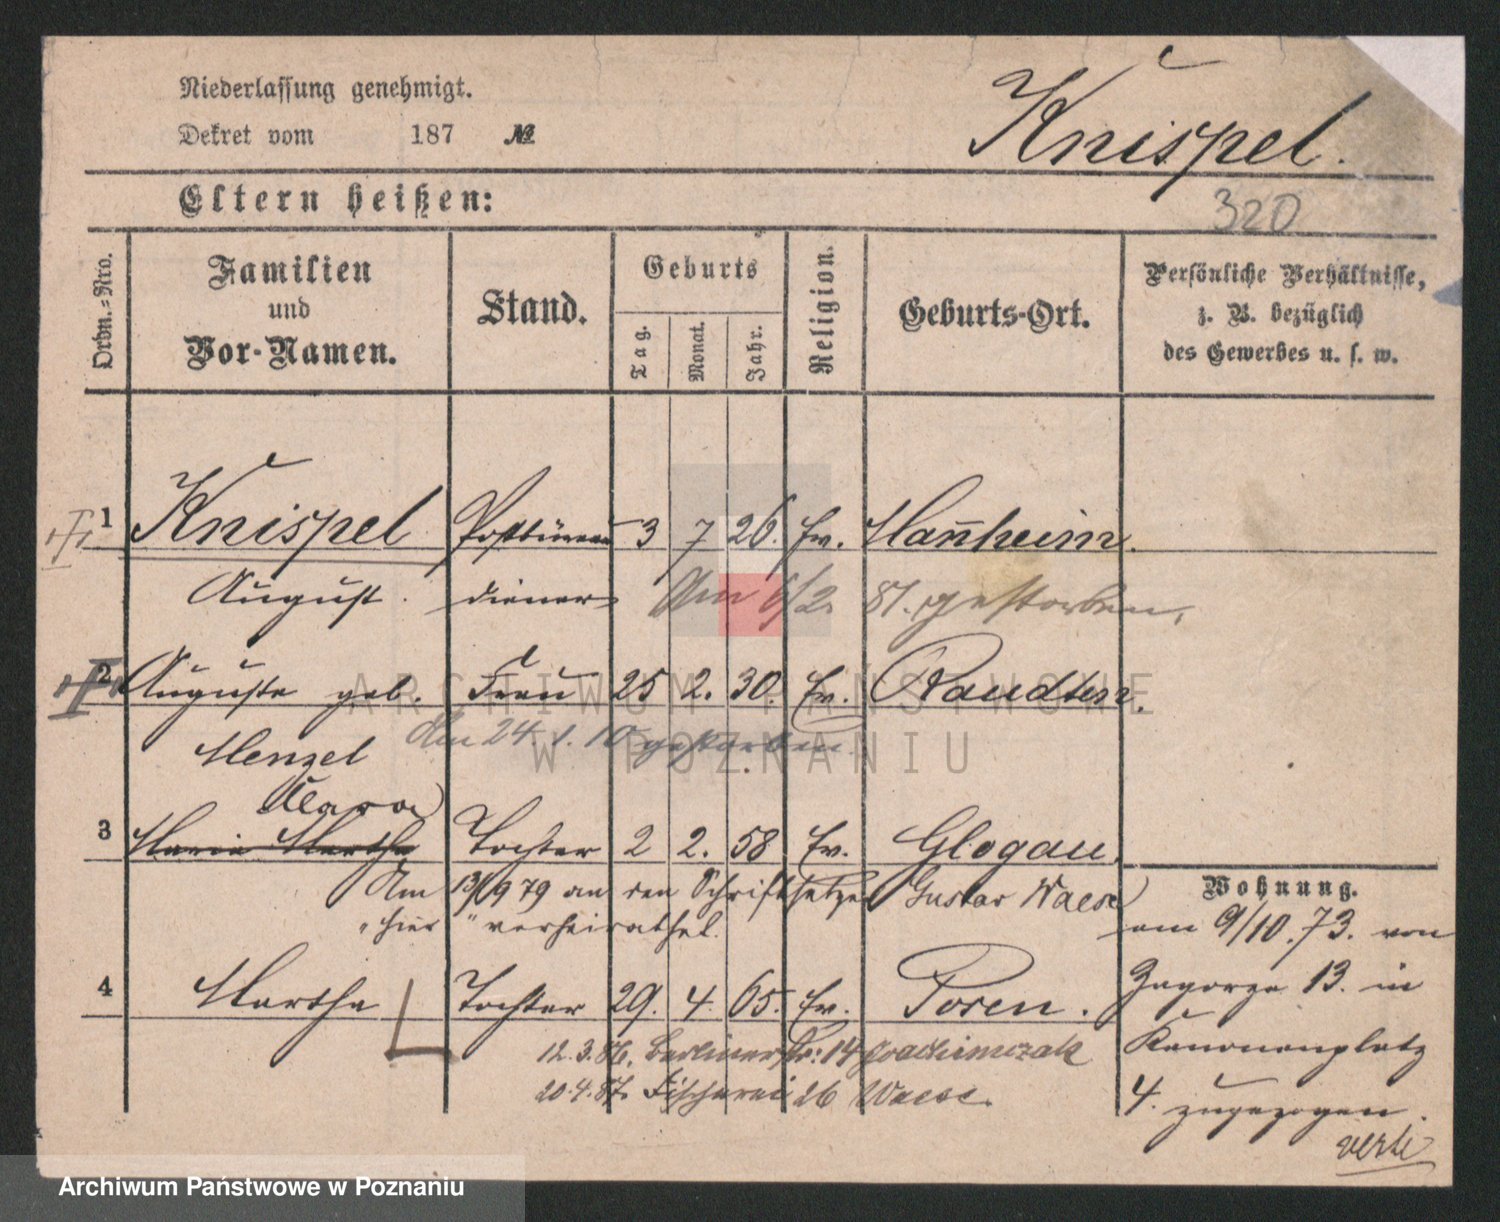 Niederlassung genehmigt.
Dekret vom 187 №
Knispel.
320
Eltern heißen:
Ordn.-Nro.
Familien
und
Vor-Namen.
Stand.
Geburts
Tag.
Monat.
Jahr.
Religion.
Geburts-Ort.
Persönliche Verhältnisse,
z. B. bezüglich
des Gewerbes u. s. w.
1 Knispel Postbüreau 3 7 26. Ev. Mannheim.
August. diener Am 6/2. 81. gestorben.
2 Auguste geb. Frau 25 2. 30. Ev. Raudten.
Menzel Am 24. 1. 10 gestorben.
Clara
3 Maria Martha Tochter 2 2. 58 Ev. Glogau.
Am 13/9 79 an den Schriftsetzer Gustav Waese
"hier" verheirathet.
4 Martha Tochter 29. 4. 65. Ev. Posen.
12.3.86. Berlinerstr: 14 Joachimczak
20.4.87. Fischerei 26 Waese.
Wohnung.
am 9/10. 73. von
Zagorze 13. in
Kanonenplatz
4. zugezogen.
verte
ARCHIWUM PAŃSTWOWE
W POZNANIU
Archiwum Państwowe w Poznaniu